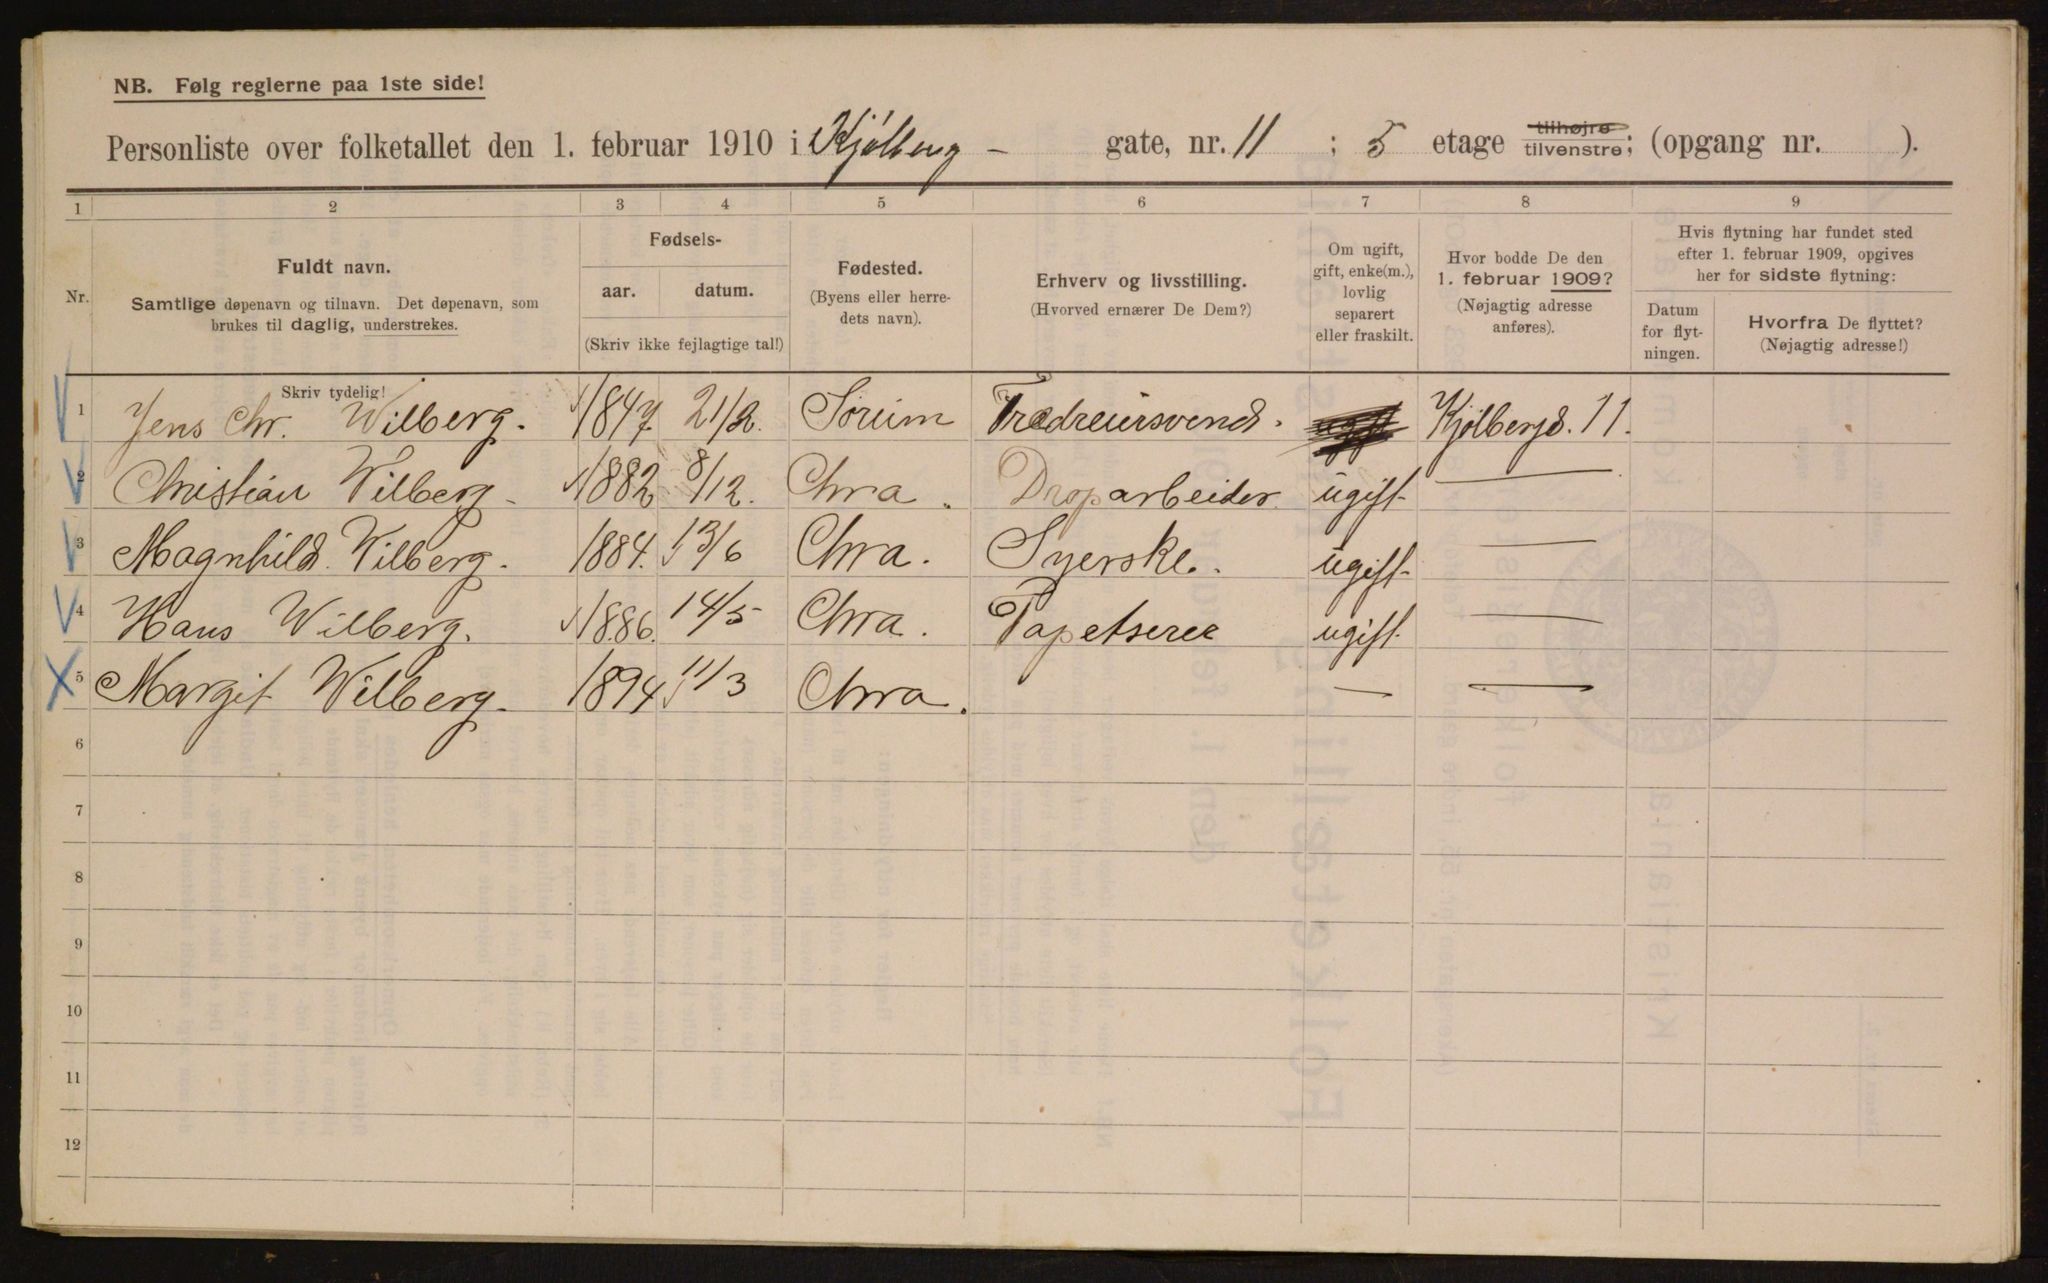 NB. Følg reglerne paa 1ste side!
Personliste over folketallet den 1. februar 1910 i Kjølberg - gate, nr. 11 ; 5 etage tilhøjre tilvenstre; (opgang nr. ).
1 2 3 4 5 6 7 8 9
Nr.
Fuldt navn.
Samtlige døpenavn og tilnavn. Det døpenavn, som
brukes til daglig, understrekes.
Skriv tydelig!
Fødsels-
aar. datum.
(Skriv ikke fejlagtige tal!)
Fødested.
(Byens eller herre-
dets navn).
Erhverv og livsstilling.
(Hvorved ernærer De Dem?)
Om ugift,
gift, enke(m.),
lovlig
separert
eller fraskilt.
Hvor bodde De den
1. februar 1909?
(Nøjagtig adresse
anføres).
Hvis flytning har fundet sted
efter 1. februar 1909, opgives
her for sidste flytning:
Datum
for flyt-
ningen.
Hvorfra De flyttet?
(Nøjagtig adresse!)
1 Jens Chr. Wilberg. 1847 21/2. Sørum Trædreiersvend. ugift Kjølbergd. 11.
2 Christian Wilberg - 1882 8/12. Chra. arbeider ugift —
3 Magnhild Wilberg. 1884. 13/6 Chra. Syerske. ugift —
4 Hans Wilberg. 1886. 14/5 Chra. Tapetserer ugift. —
5 Margit Wilberg. 1894 11/3 Chra. — —
6
7
8
9
10
11
12